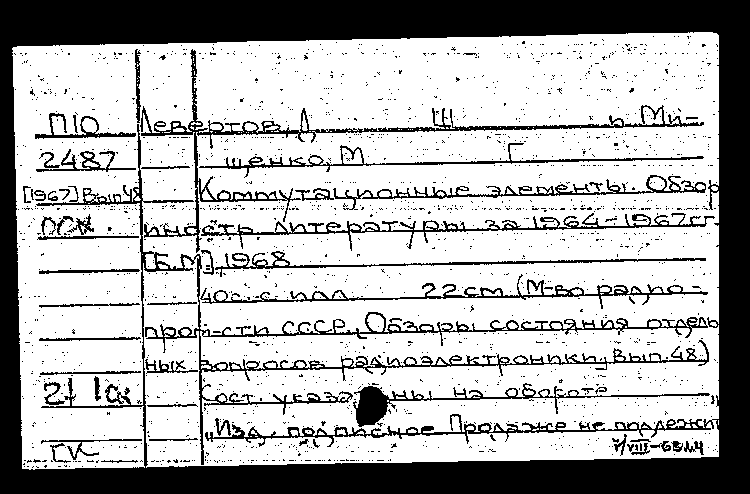 П10 Левертов, Д Ш и Ми-
2487 щенко, М Г
[1967] Вып.48 Коммутационные элементы. Обзор
иностр. литературы за 1964-1967гг.
[Б.М], 1968
40с. с илл. 22см (М-во радио-
пром-сти СССР. „Обзоры состояния отдель
ных вопросов радиоэлектроники, Вып.48)
Сост. указаны на обороте
„Изд. подписное Продаже не подлежит
ГК